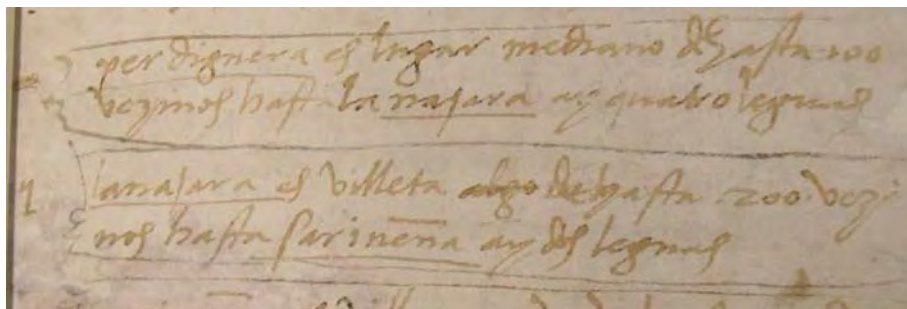 perdiguera es lugar mediano de hasta 100
vezinos hasta lanajara ay quatro leguas
lanajara es villeta algo de hasta 200 vezi
nos hasta sariñena ay dos leguas